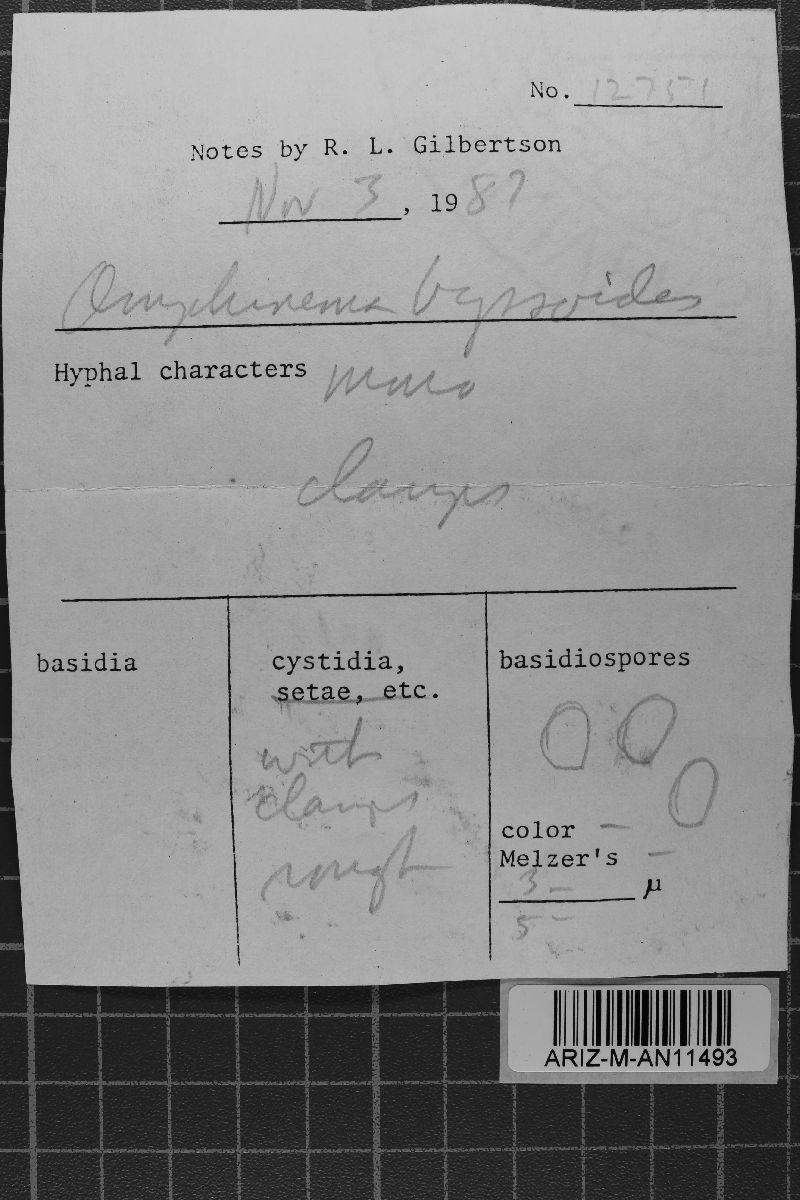 No. 12751
Notes by R. L. Gilbertson
Nov 3, 1987
Amphinema byssoides
Hyphal characters mono
clamps
basidia
cystidia,
setae, etc.
with
clamps
rough
basidiospores
color –
Melzer's –
3 – µ
5 –
ARIZ-M-AN11493